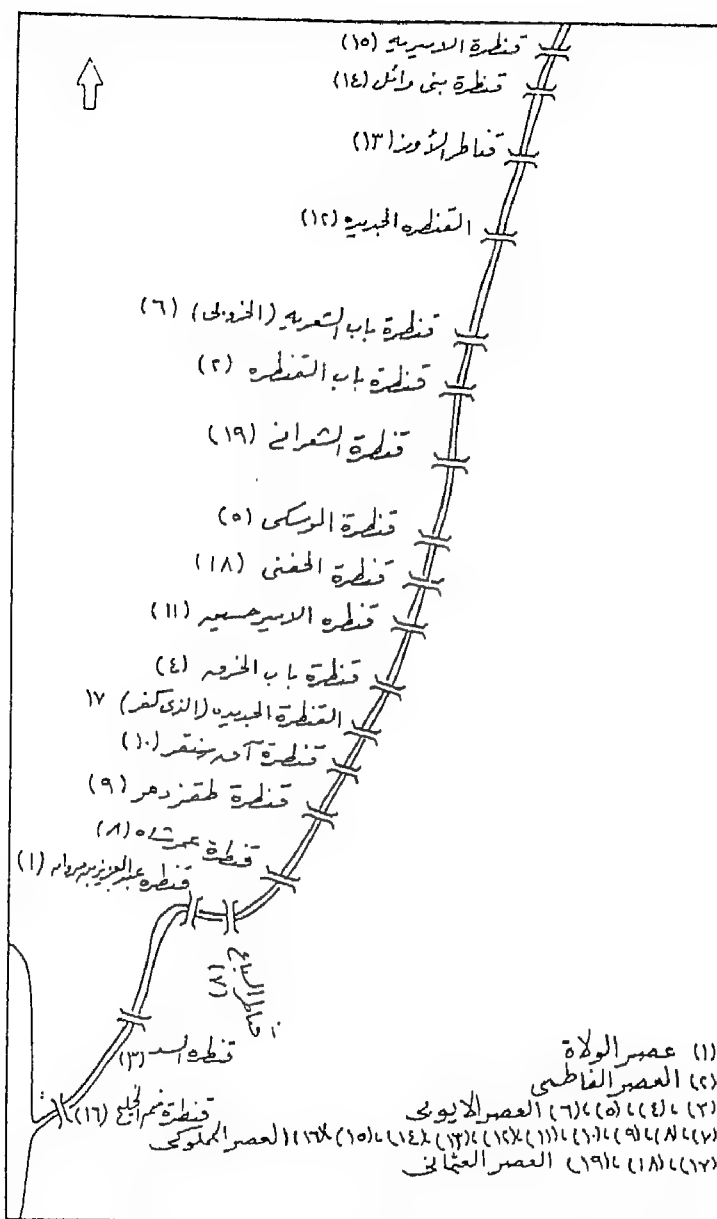 قنطرة الاميريه (١٥)
قنطرة بنى وائل (١٤)
قناطر الأوز (١٣)
القنطره الجديده (١٢)
قنطرة باب الشعريه (الخروبى) (٦)
قنطرة باب القنطره (٢)
قنطرة الشعرانى (١٩)
قنطرة الموسكى (٥)
قنطرة الحفنى (١٨)
قنطره الاميرحسين (١١)
قنطرة باب الخرق (٤)
القنطرة الجديده (الذى كفر) ١٧
قنطرة آق سنقر (١٠)
قنطرة طقزدمر (٩)
قنطرة عمرشاه (٨)
قنطره عبدالعزيزبن مروان (١)
قناطر السباع
(٧)
قنطره السد (٣)
قنطرة فم الخليج (١٦)
(١) عصر الولاة
(٢) العصر الفاطمى
(٣)،(٤)،(٥)،(٦) العصر الايوبى
(٧)،(٨)،(٩)،(١٠)،(١١)،(١٢)،(١٣)،(١٤)،(١٥)،(١٦) العصر المملوكى
(١٧)،(١٨)،(١٩) العصر العثمانى